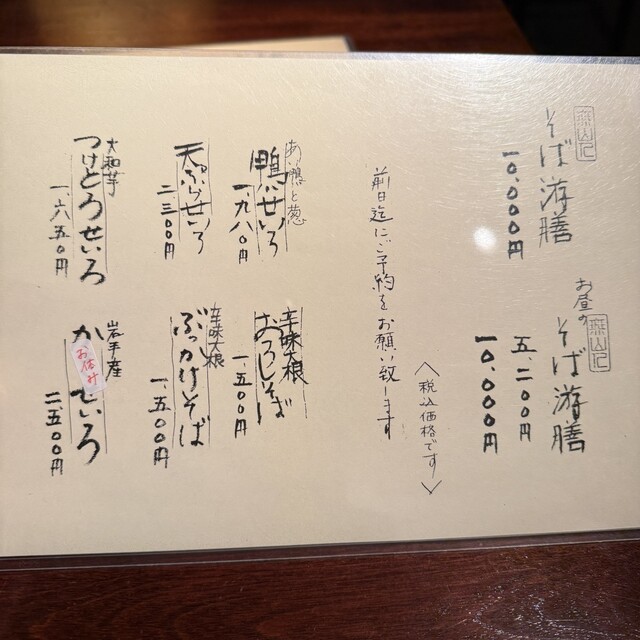 そば游膳
一〇、〇〇〇円
お昼の
そば游膳
五、二〇〇円
一〇、〇〇〇円
〈税込価格です〉
前日迄にご予約をお願い致します
鴨と葱
鴨せいろ
一、九八〇円
辛味大根
おろしそば
一、五〇〇円
天ぷらせいろ
二、三〇〇円
辛味大根
ぶっかけそば
一、五〇〇円
大和芋
つけとろせいろ
一、六五〇円
岩手産
か
お休み
せいろ
二、五〇〇円